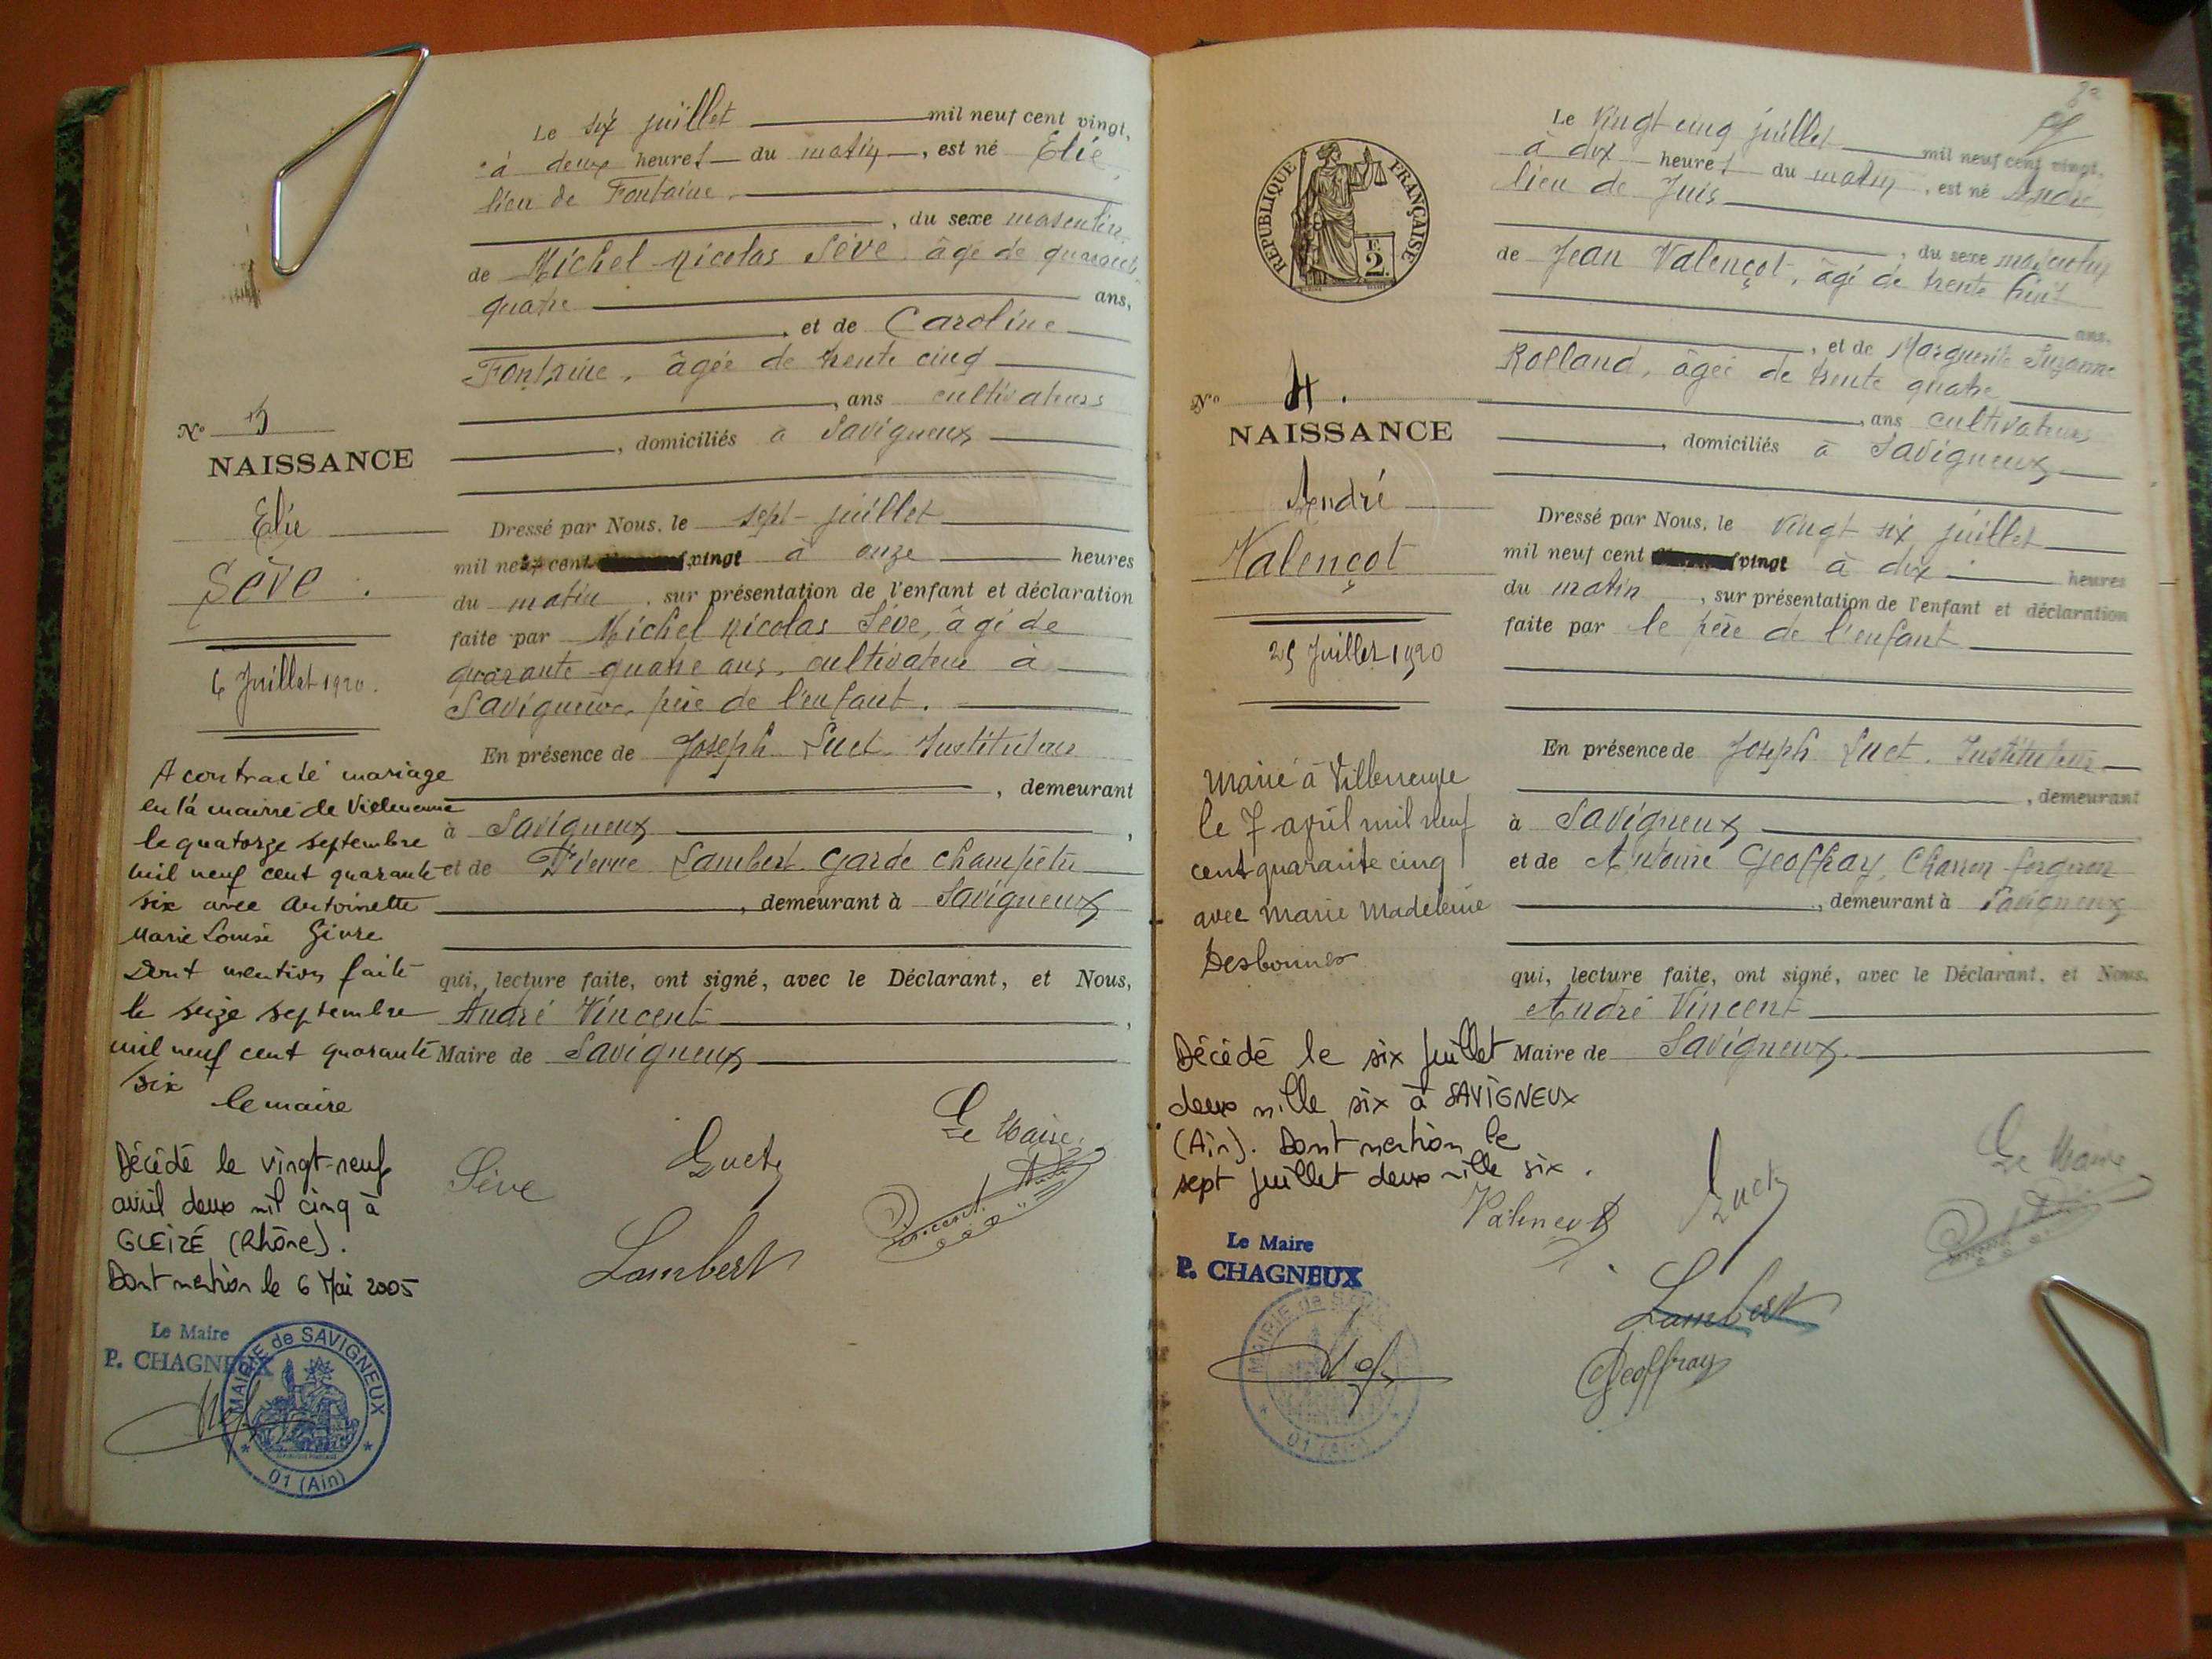 Le six juillet mil neuf cent vingt,
à deux heures du matin, est né Elie
lieu de Fontaine
, du sexe masculin
de Michel Nicolas Sève, âgé de quarante
quatre ans,
, et de Caroline
Fontaine, âgée de trente cinq
, ans cultivateurs
, domiciliés à Savigneux
Nº 3
NAISSANCE
Elie
Sève.
6 Juillet 1920.
Dressé par Nous, le sept juillet
mil neuf cent vingt à onze heures
du matin, sur présentation de l'enfant et déclaration
faite par Michel Nicolas Sève, âgé de
quarante quatre ans, cultivateur à
Savigneux, père de l'enfant.
En présence de Joseph Suet Instituteur
, demeurant
à Savigneux,
et de Pierre Lambert Garde Champêtre
, demeurant à Savigneux
qui, lecture faite, ont signé, avec le Déclarant, et Nous,
André Vincent,
Maire de Savigneux
A contracté mariage
en la mairie de Villeneuve
le quatorze septembre
mil neuf cent quarante
six avec Antoinette
Marie Louise Givre
Dont mention faite
le seize septembre
mil neuf cent quarante
six
le maire
Décédé le vingt-neuf
avril deux mil cinq à
GLEIZÉ (Rhône).
Dont mention le 6 Mai 2005
Le Maire
P. CHAGNEUX
MAIRIE de SAVIGNEUX
01 (Ain)
Sève
Suet
Le Maire
Vincent
Lambert
Le vingt cinq juillet mil neuf cent vingt,
à dix heures du matin, est né André
lieu de Juis
, du sexe masculin
de Jean Valençot, âgé de trente huit
ans,
, et de Marguerite Suzanne
Rolland, âgée de trente quatre
, ans cultivateurs
, domiciliés à Savigneux
RÉPUBLIQUE FRANÇAISE
2F.
Nº 4.
NAISSANCE
André
Valençot
25 Juillet 1920
Dressé par Nous, le vingt six juillet
mil neuf cent vingt à dix heures
du matin, sur présentation de l'enfant et déclaration
faite par le père de l'enfant
En présence de Joseph Suet. Instituteur
, demeurant
à Savigneux
et de Antoine Geoffray, Charron forgeron
, demeurant à Savigneux
qui, lecture faite, ont signé, avec le Déclarant, et Nous,
André Vincent
Maire de Savigneux.
Marié à Villeneuve
le 7 avril mil neuf
cent quarante cinq
avec Marie Madeleine
Desbonnes
Décédé le six juillet
deux mille six à SAVIGNEUX
(Ain). Dont mention le
sept juillet deux mille six.
Le Maire
P. CHAGNEUX
MAIRIE de
01 (Ain)
Valençot
Suet
Le Maire
Vincent
Lambert
Geoffray